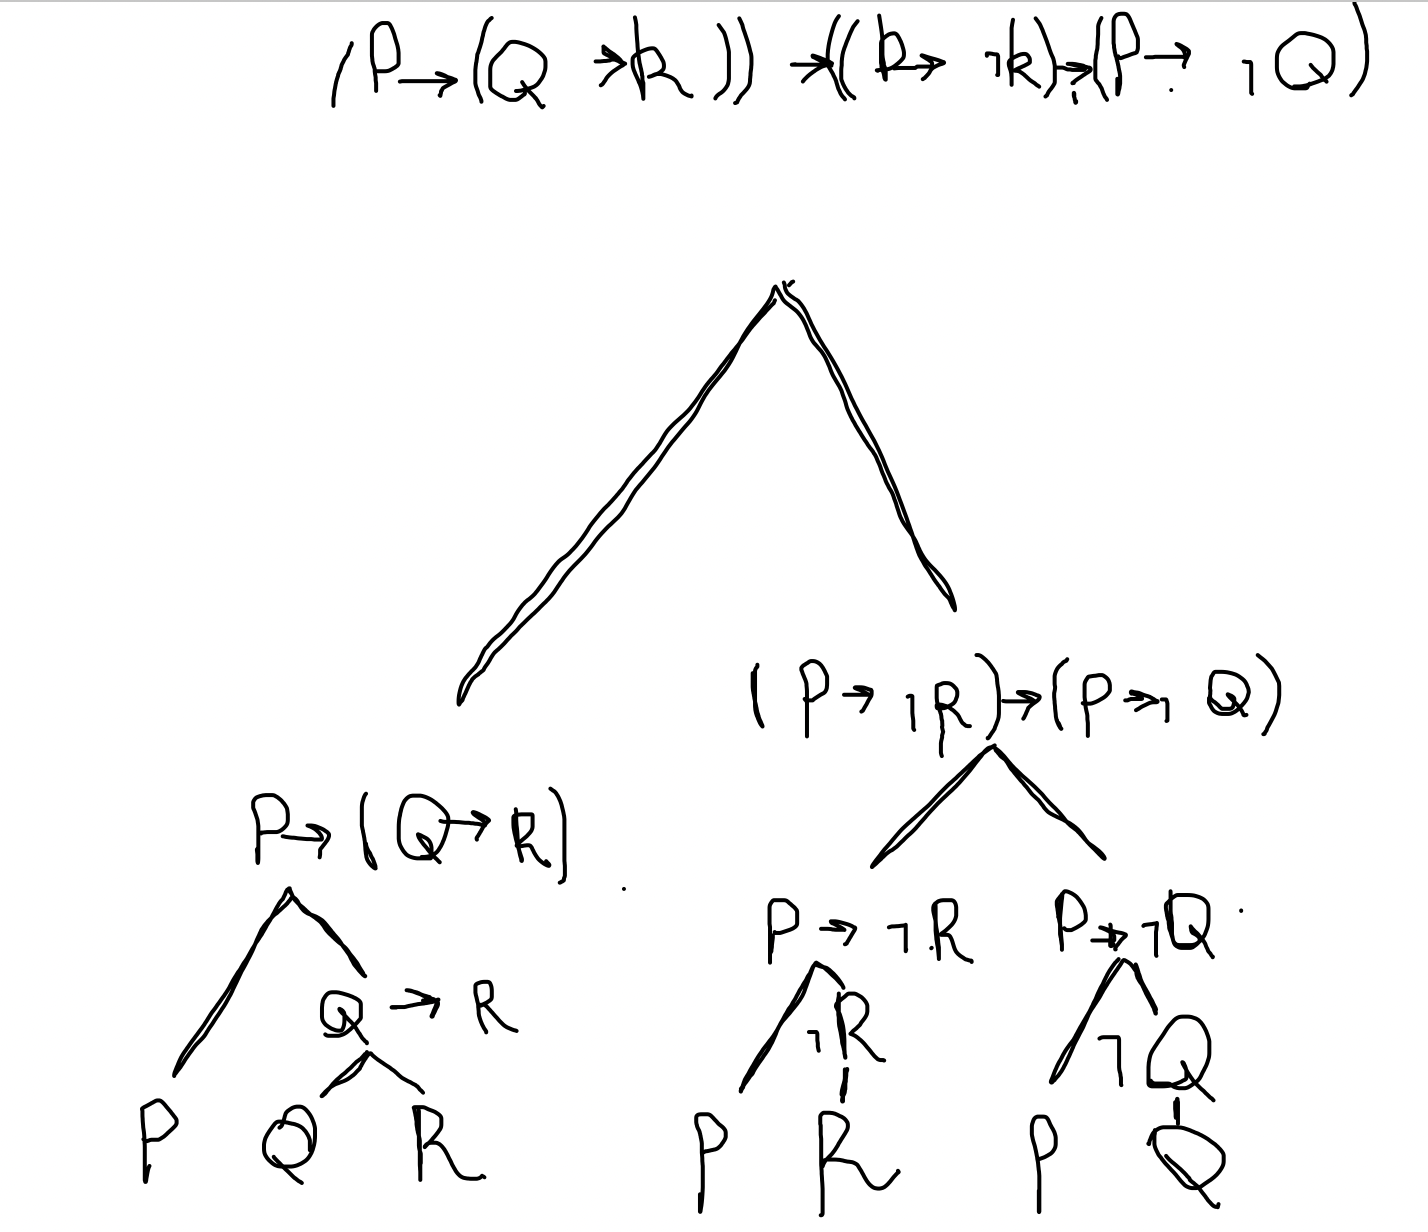 (P→(Q→R))→((P→¬R)→(P→¬Q)
(P→¬R)→(P→¬Q)
P→(Q→R)
P→¬R P→¬Q
Q→R ¬R ¬Q
P Q R P R P Q